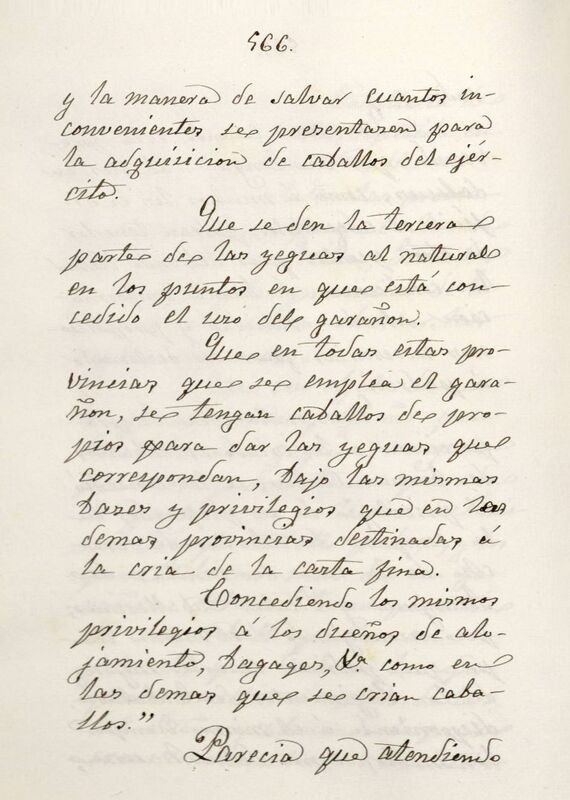 566.
y la manera de salvar cuantos in-
convenientes se presentasen para
la adquisicion de caballos del ejér-
cito.
Que se den la tercera
parte de las yeguas al natural
en los puntos en que está con-
cedido el uso del garañon.
Que en todas estas pro-
vincias que se emplea el gara-
ñon, se tengan caballos de pro-
pios para dar las yeguas que
correspondan, bajo las mismas
bases y privilegios que en las
demas provincias destinadas á
la cria de la casta fina.
Concediendo los mismos
privilegios á los dueños de alo-
jamiento, bagages, &a. como en
las demas que se crian caba-
llos."
Parecia que atendiendo